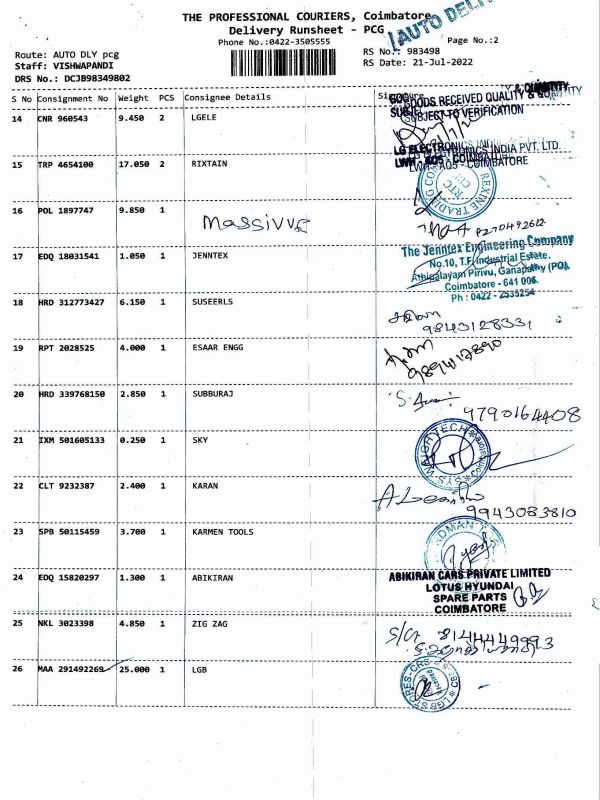 THE PROFESSIONAL COURIERS, Coimbatore
AUTO DEL
Delivery Runsheet - PCG
Phone No.:0422-3505555
Page No.:2
Route: AUTO DLY pcg
RS No.: 983498
Staff: VISHWAPANDI
RS Date: 21-Jul-2022
DRS No.: DCJB98349802
S No Consignment No Weight PCS Consignee Details Signature
14 CNR 960543 9.450 2 LGELE
GOODS RECEIVED QUALITY & QUANTITY
SUBJECT TO VERIFICATION
LG ELECTRONICS INDIA PVT. LTD.
LWH - AQ5 - COIMBATORE
15 TRP 4654100 17.050 2 RIXTAIN
REXINE TRADING CO
RTC
16 POL 1897747 9.850 1
MASSIVVE
8270492612
17 EDQ 18031541 1.050 1 JENNTEX
The Jenntex Engineering Company
No.10, T.F. Industrial Estate,
Athipalayam Pirivu, Ganapathy (PO),
Coimbatore - 641 006.
Ph : 0422 - 2535254
18 HRD 312773427 6.150 1 SUSEERLS
9843128331
19 RPT 2028525 4.000 1 ESAAR ENGG
9894417890
20 HRD 339768150 2.850 1 SUBBURAJ
9790164408
21 IXM 501605133 0.250 1 SKY
22 CLT 9232387 2.400 1 KARAN
9943083810
23 SPB 50115459 3.700 1 KARMEN TOOLS
24 EDQ 15820297 1.300 1 ABIKIRAN
ABIKIRAN CARS PRIVATE LIMITED
LOTUS HYUNDAI
SPARE PARTS
COIMBATORE
25 NKL 3023398 4.850 1 ZIG ZAG
8144449993
26 MAA 291492269 25.000 1 LGB